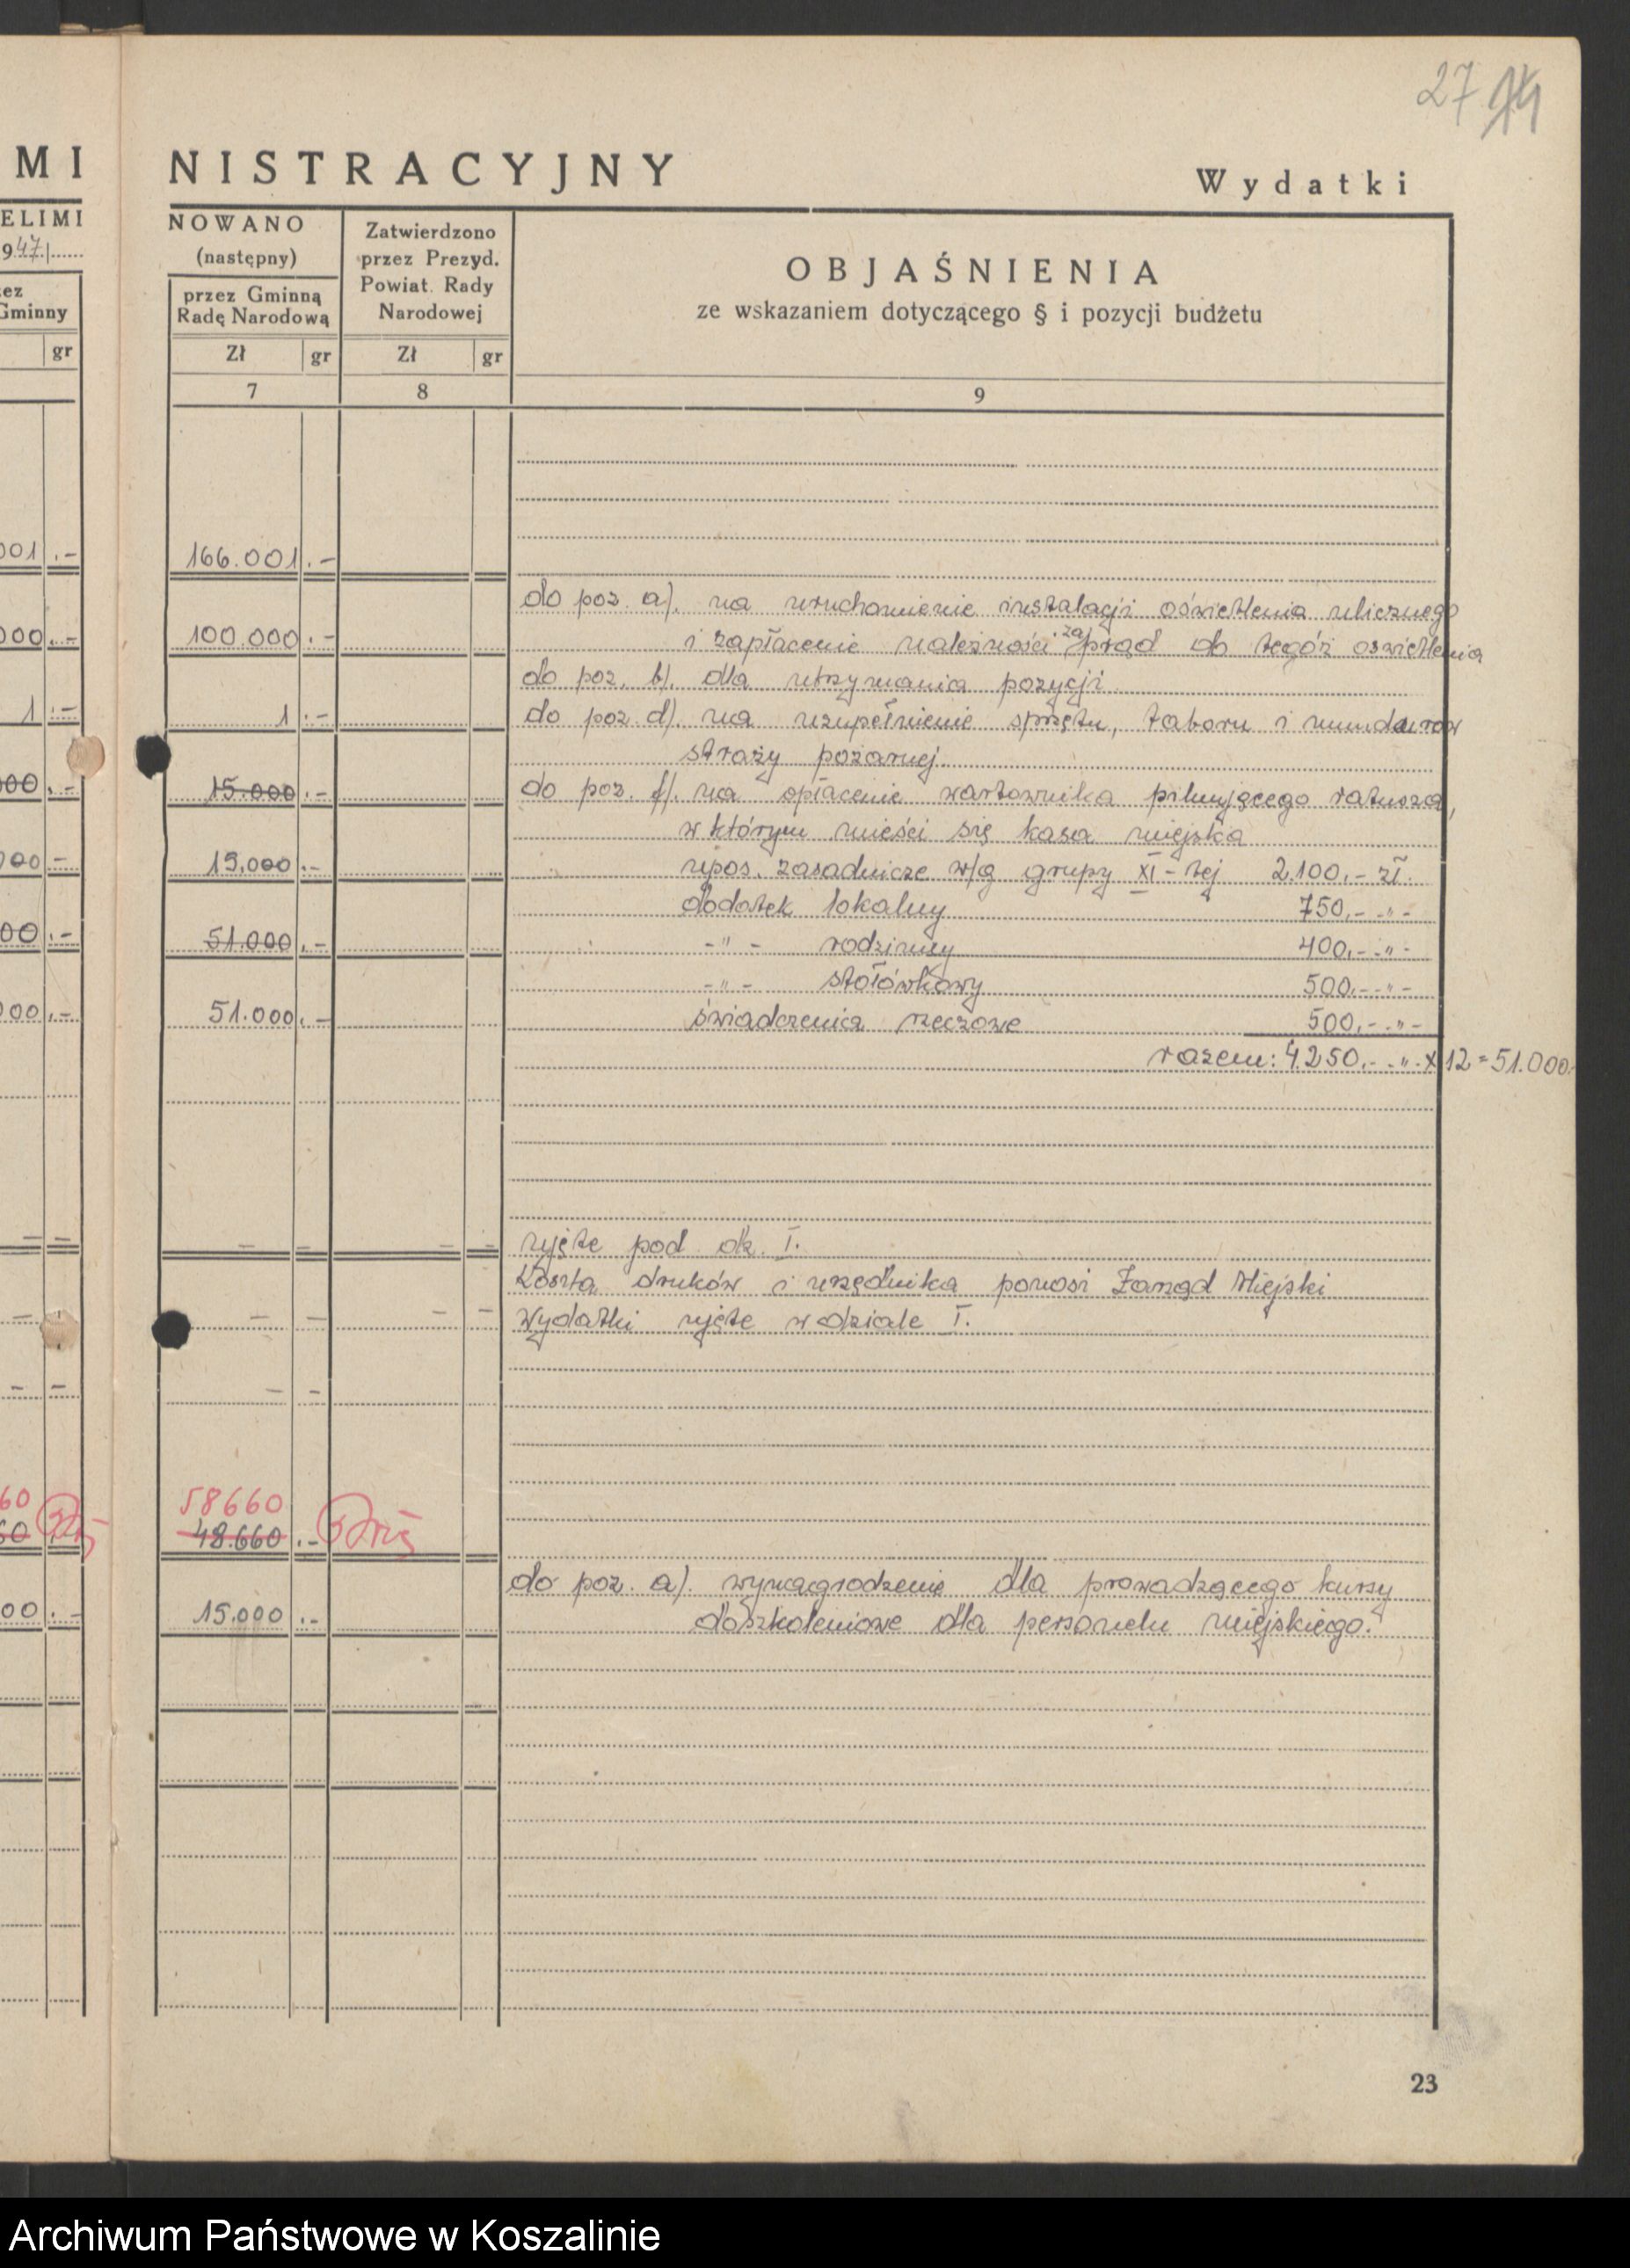 27 14
MI NISTRACYJNY
Wydatki
ELIMI
947
NOWANO
(następny)
Zatwierdzono
przez Prezyd.
Powiat. Rady
Narodowej
OBJAŚNIENIA
ze wskazaniem dotyczącego § i pozycji budżetu
ez
Gminny
przez Gminną
Radę Narodową
gr
Zł gr
Zł gr
7 8 9
001 .- 166.001 .-
do poz. a). na uruchomienie instalacji oświetlenia ulicznego
000 .- 100.000 .- i zapłacenie należności za prąd do tegóż oświetlenia
do poz. b). dla utrzymania pozycji
1 .- 1 .- do poz. d). na uzupełnienie sprzętu, taboru i mundurów
straży pożarnej.
000 .- 15.000 .- do poz. f). na opłacenie wartownika pilnującego ratusza,
w którym mieści się kasa miejska
000 .- 15.000 .- upos. zasadnicze w/g grupy XI-tej 2.100,- zł.
dodatek lokalny 750,- -"-
00 .- 51.000 .- -"- rodzinny 400,- -"-
-"- stołówkowy 500,- -"-
000 .- 51.000 .- świadczenia rzeczowe 500,- -"-
razem: 4.250,- -"- x 12 = 51.000.-
- - - - - - ujęte pod dz. I.
Koszta druków i urzędnika ponosi Zarząd Miejski
- - - - - Wydatki ujęte w dziale I.
- - - -
60 58660
60 48.660 .-
do poz. a). wynagrodzenie dla prowadzącego kursy
00 .- 15.000 .- doszkoleniowe dla personelu miejskiego.
23
Archiwum Państwowe w Koszalinie